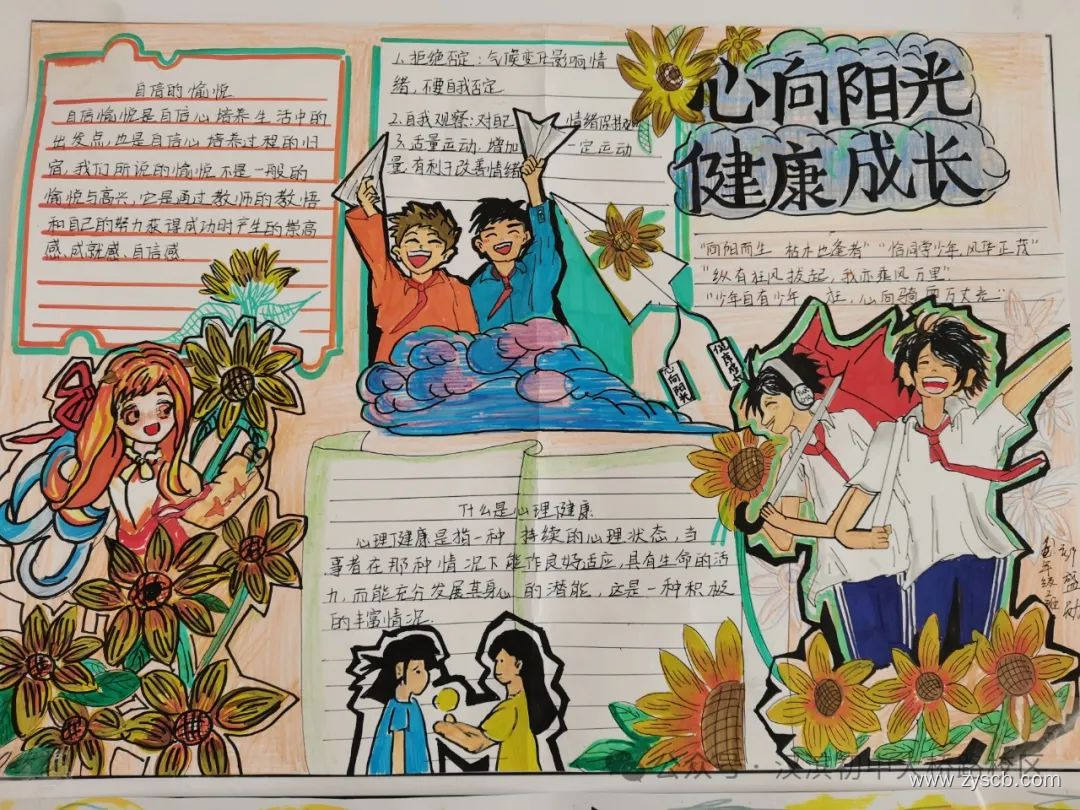 心向阳光
健康成长
自信的愉悦
自信愉悦是自信心培养生活中的
出发点,也是自信心培养过程的归
宿,我们所说的愉悦不是一般的
愉悦与高兴,它是通过教师的教悟
和自己的努力获得成功时产生的崇高
感,成就感、自信感.
1.拒绝否定:气候变化影响情
绪,不要自我否定.
2.自我观察:对自己 情绪保持
3.适量运动.增加 一定运动
量,有利于改善情绪
"向阳而生 枯木也逢春" "恰同学少年,风华正茂"
"纵有狂风拔起,我亦乘风万里"
"少年自有少年 狂,心向骄阳万丈光"
心向阳光
什么是心理健康
心理健康是指一种 持续的心理状态,当
事者在那种情况下能作良好适应,具有生命的活
力,而能充分发展其身心 的潜能,这是一种积极
的丰富情况.
公众号
www.zyscb.com